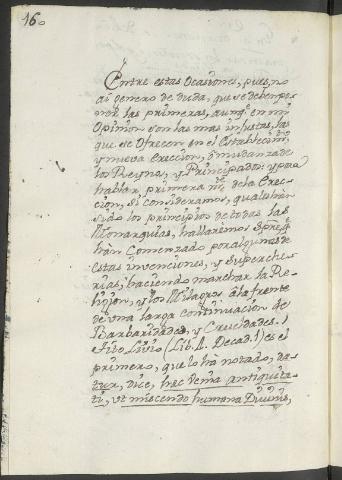 16.
Entre estas Ocasiones, pues, no
ai genero de duda, que se deben po-
ner las primeras, aunq.e en mi
Opinion son las mas injustas, las
que se Ofrecen en el Establecim.to
y nueva Ereccion, ò mudanza de
los Reynos, y Principados: y para
hablar primera m.te de la Erec-
cion, si consideramos, quales hàn
sido los principios de todas las
Monarquias, hallaremos Spre, q.e
hàn Comenzado por algunas de
estas invenciones, y Superche-
rias, haciendo marchar la Re-
ligion, y los Milagros à la frente
de una larga Continuacion de
Barbaridades, y Crueldades.)
Tito Livio (Lib. 1. Decad. 1) es el
primero, que lo hà notado, da-
tur, dice, hæc venia antiquita-
ti, ut miscendo humana Divinis,